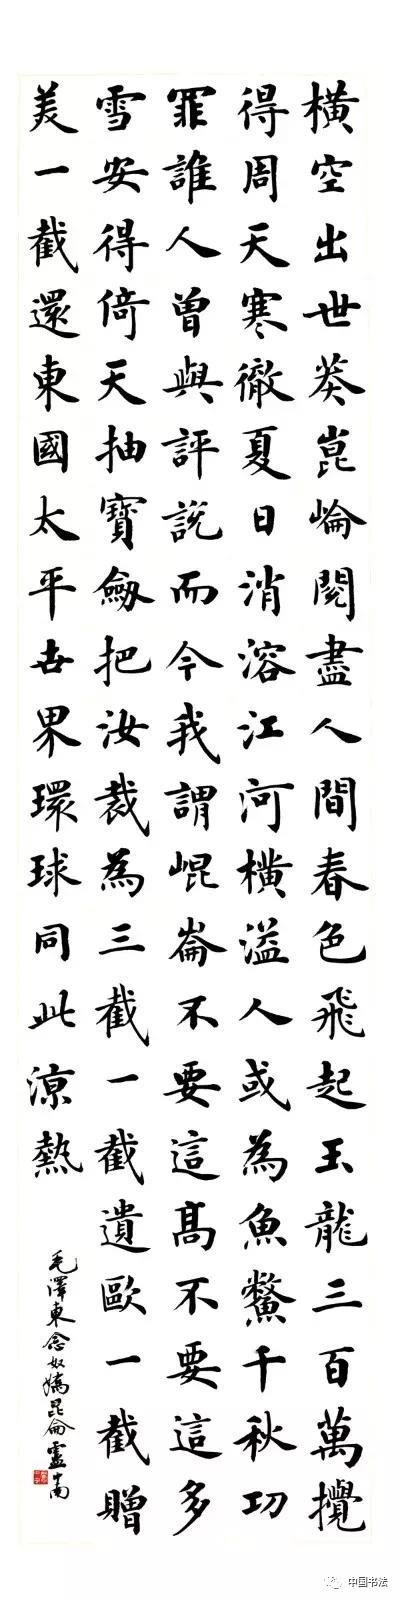 橫空出世莽崑崘閱盡人間春色飛起玉龍三百萬攪
得周天寒徹夏日消溶江河橫溢人或為魚鱉千秋功
罪誰人曾與評説而今我謂崐崙不要這髙不要這多
雪安得倚天抽寶劔把汝裁為三截一截遺歐一截贈
美一截還東國太平世界環球同此涼熱
毛澤東念奴嬌昆侖盧中南
中国书法